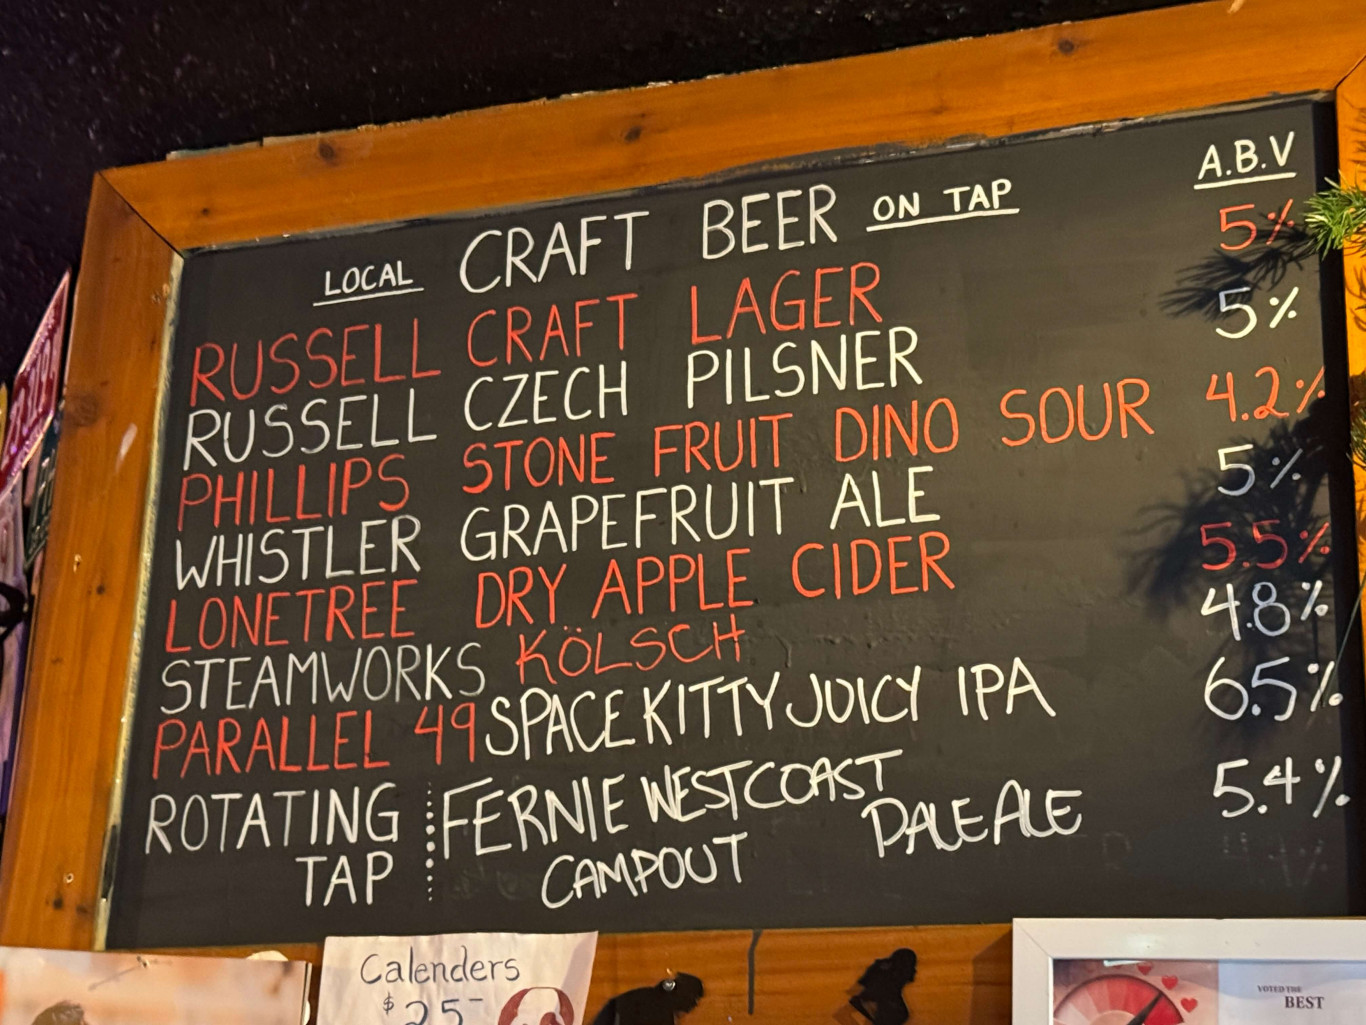 LOCAL CRAFT BEER ON TAP A.B.V
RUSSELL CRAFT LAGER 5%
RUSSELL CZECH PILSNER 5%
PHILLIPS STONE FRUIT DINO SOUR 4.2%
WHISTLER GRAPEFRUIT ALE 5%
LONETREE DRY APPLE CIDER 5.5%
STEAMWORKS KÖLSCH 4.8%
PARALLEL 49 SPACE KITTY JUICY IPA 6.5%
ROTATING TAP FERNIE WEST COAST 5.4%
CAMPOUT PALE ALE
Calenders
$25-
VOTED THE
BEST